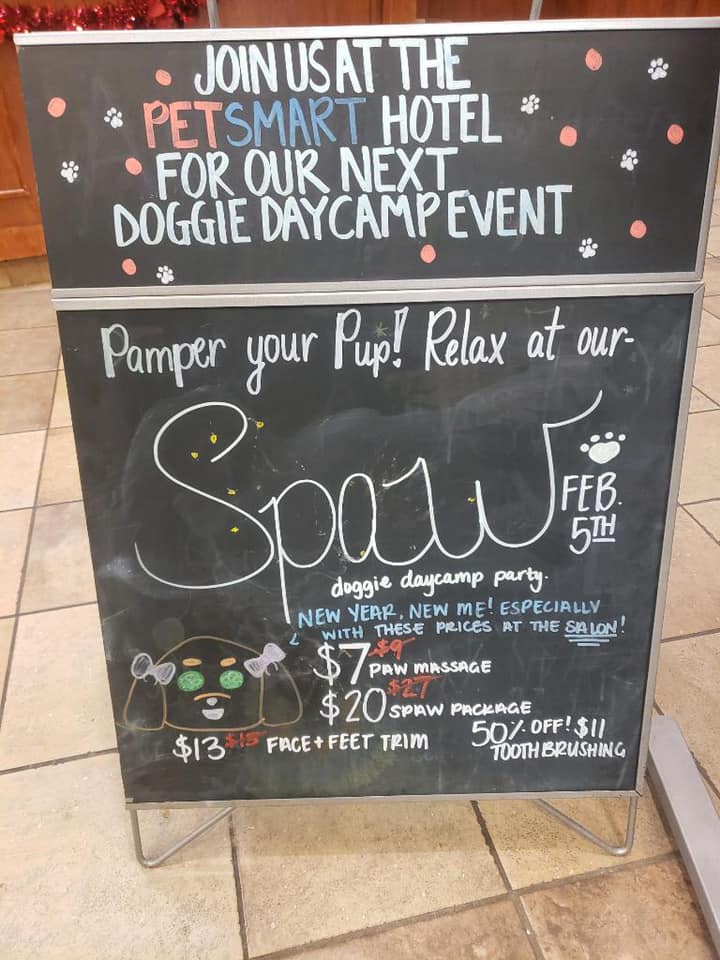 JOIN US AT THE
PETSMART HOTEL
FOR OUR NEXT
DOGGIE DAYCAMP EVENT
Pamper your Pup! Relax at our-
Spaw
FEB.
5TH
doggie daycamp party.
NEW YEAR, NEW ME! ESPECIALLY
WITH THESE PRICES AT THE SALON!
$7 $9 PAW MASSAGE
$20 $27 SPAW PACKAGE
$13 $15 FACE + FEET TRIM
50% OFF! $11
TOOTHBRUSHING